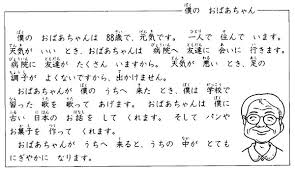 僕の おばあちゃん
僕の おばあちゃんは 88歳で、元気です。 一人で 住んで います。
天気が いい とき、おばあちゃんは 病院へ 友達に 会いに 行きます。
病院に 友達が たくさん いますから。 天気が 悪い とき、足の
調子が よくないですから、出かけません。
おばあちゃんが 僕の うちへ 来た とき、僕は 学校で
習った 歌を 歌って あげます。 おばあちゃんは 僕に
古い 日本の お話を して くれます。 そして パンや
お菓子を 作って くれます。
おばあちゃんが うちへ 来ると、うちの 中が とても
にぎやかに なります。